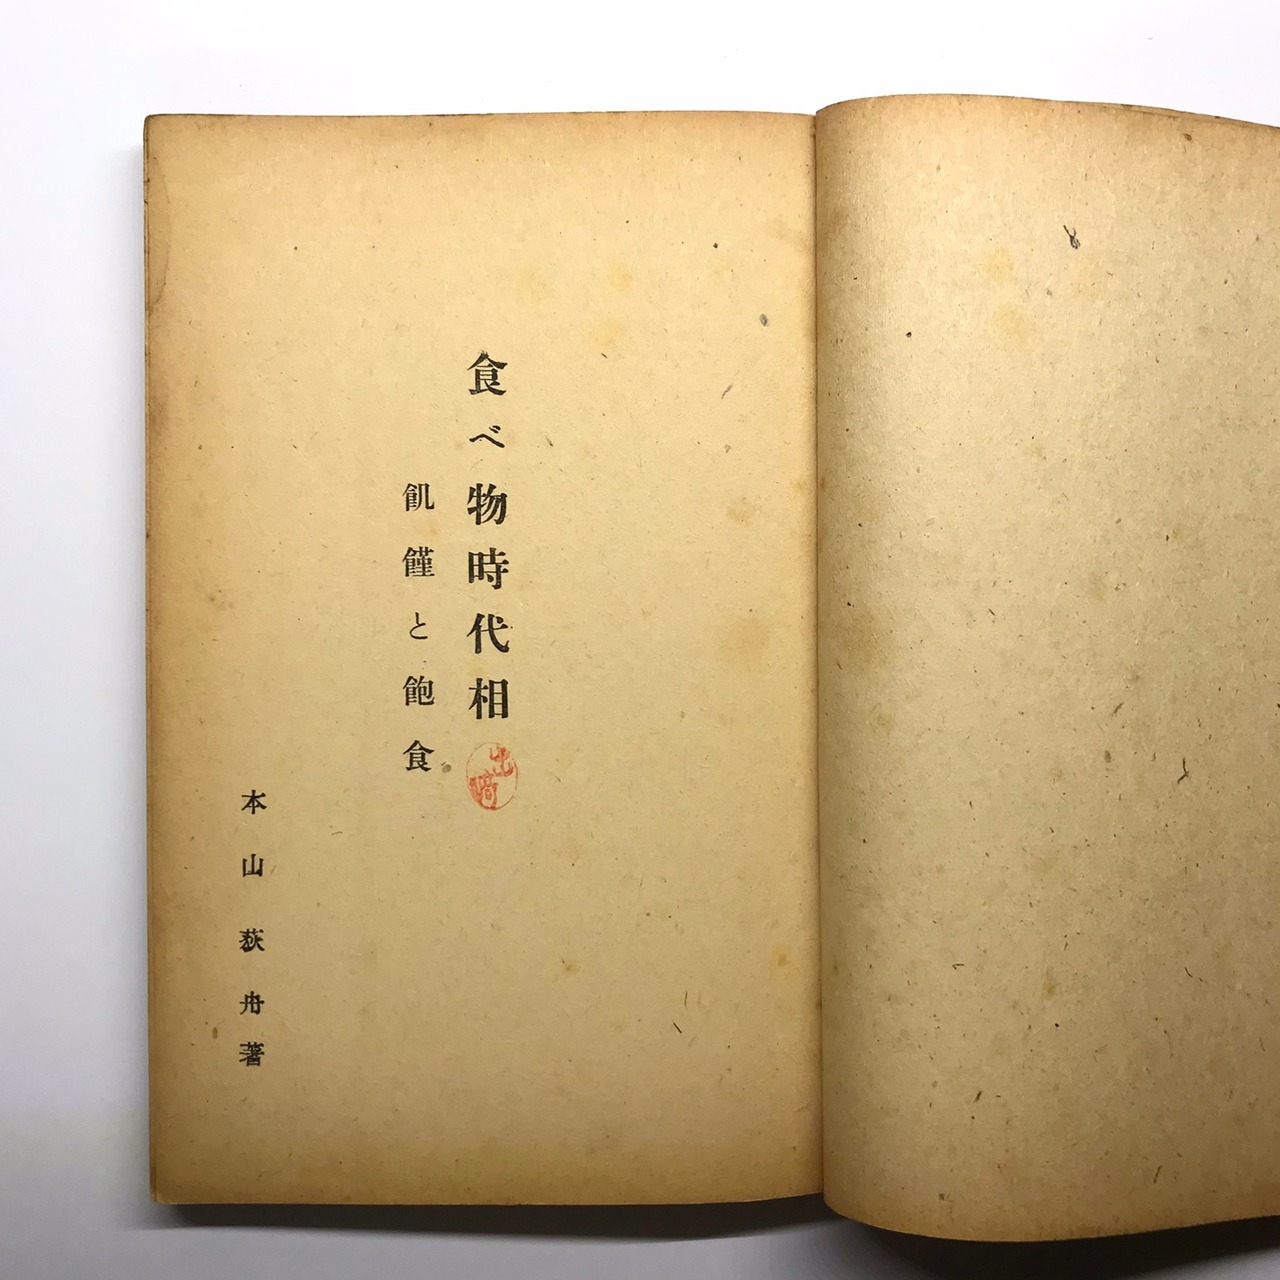 食べ物時代相
飢饉と飽食
本山荻舟著